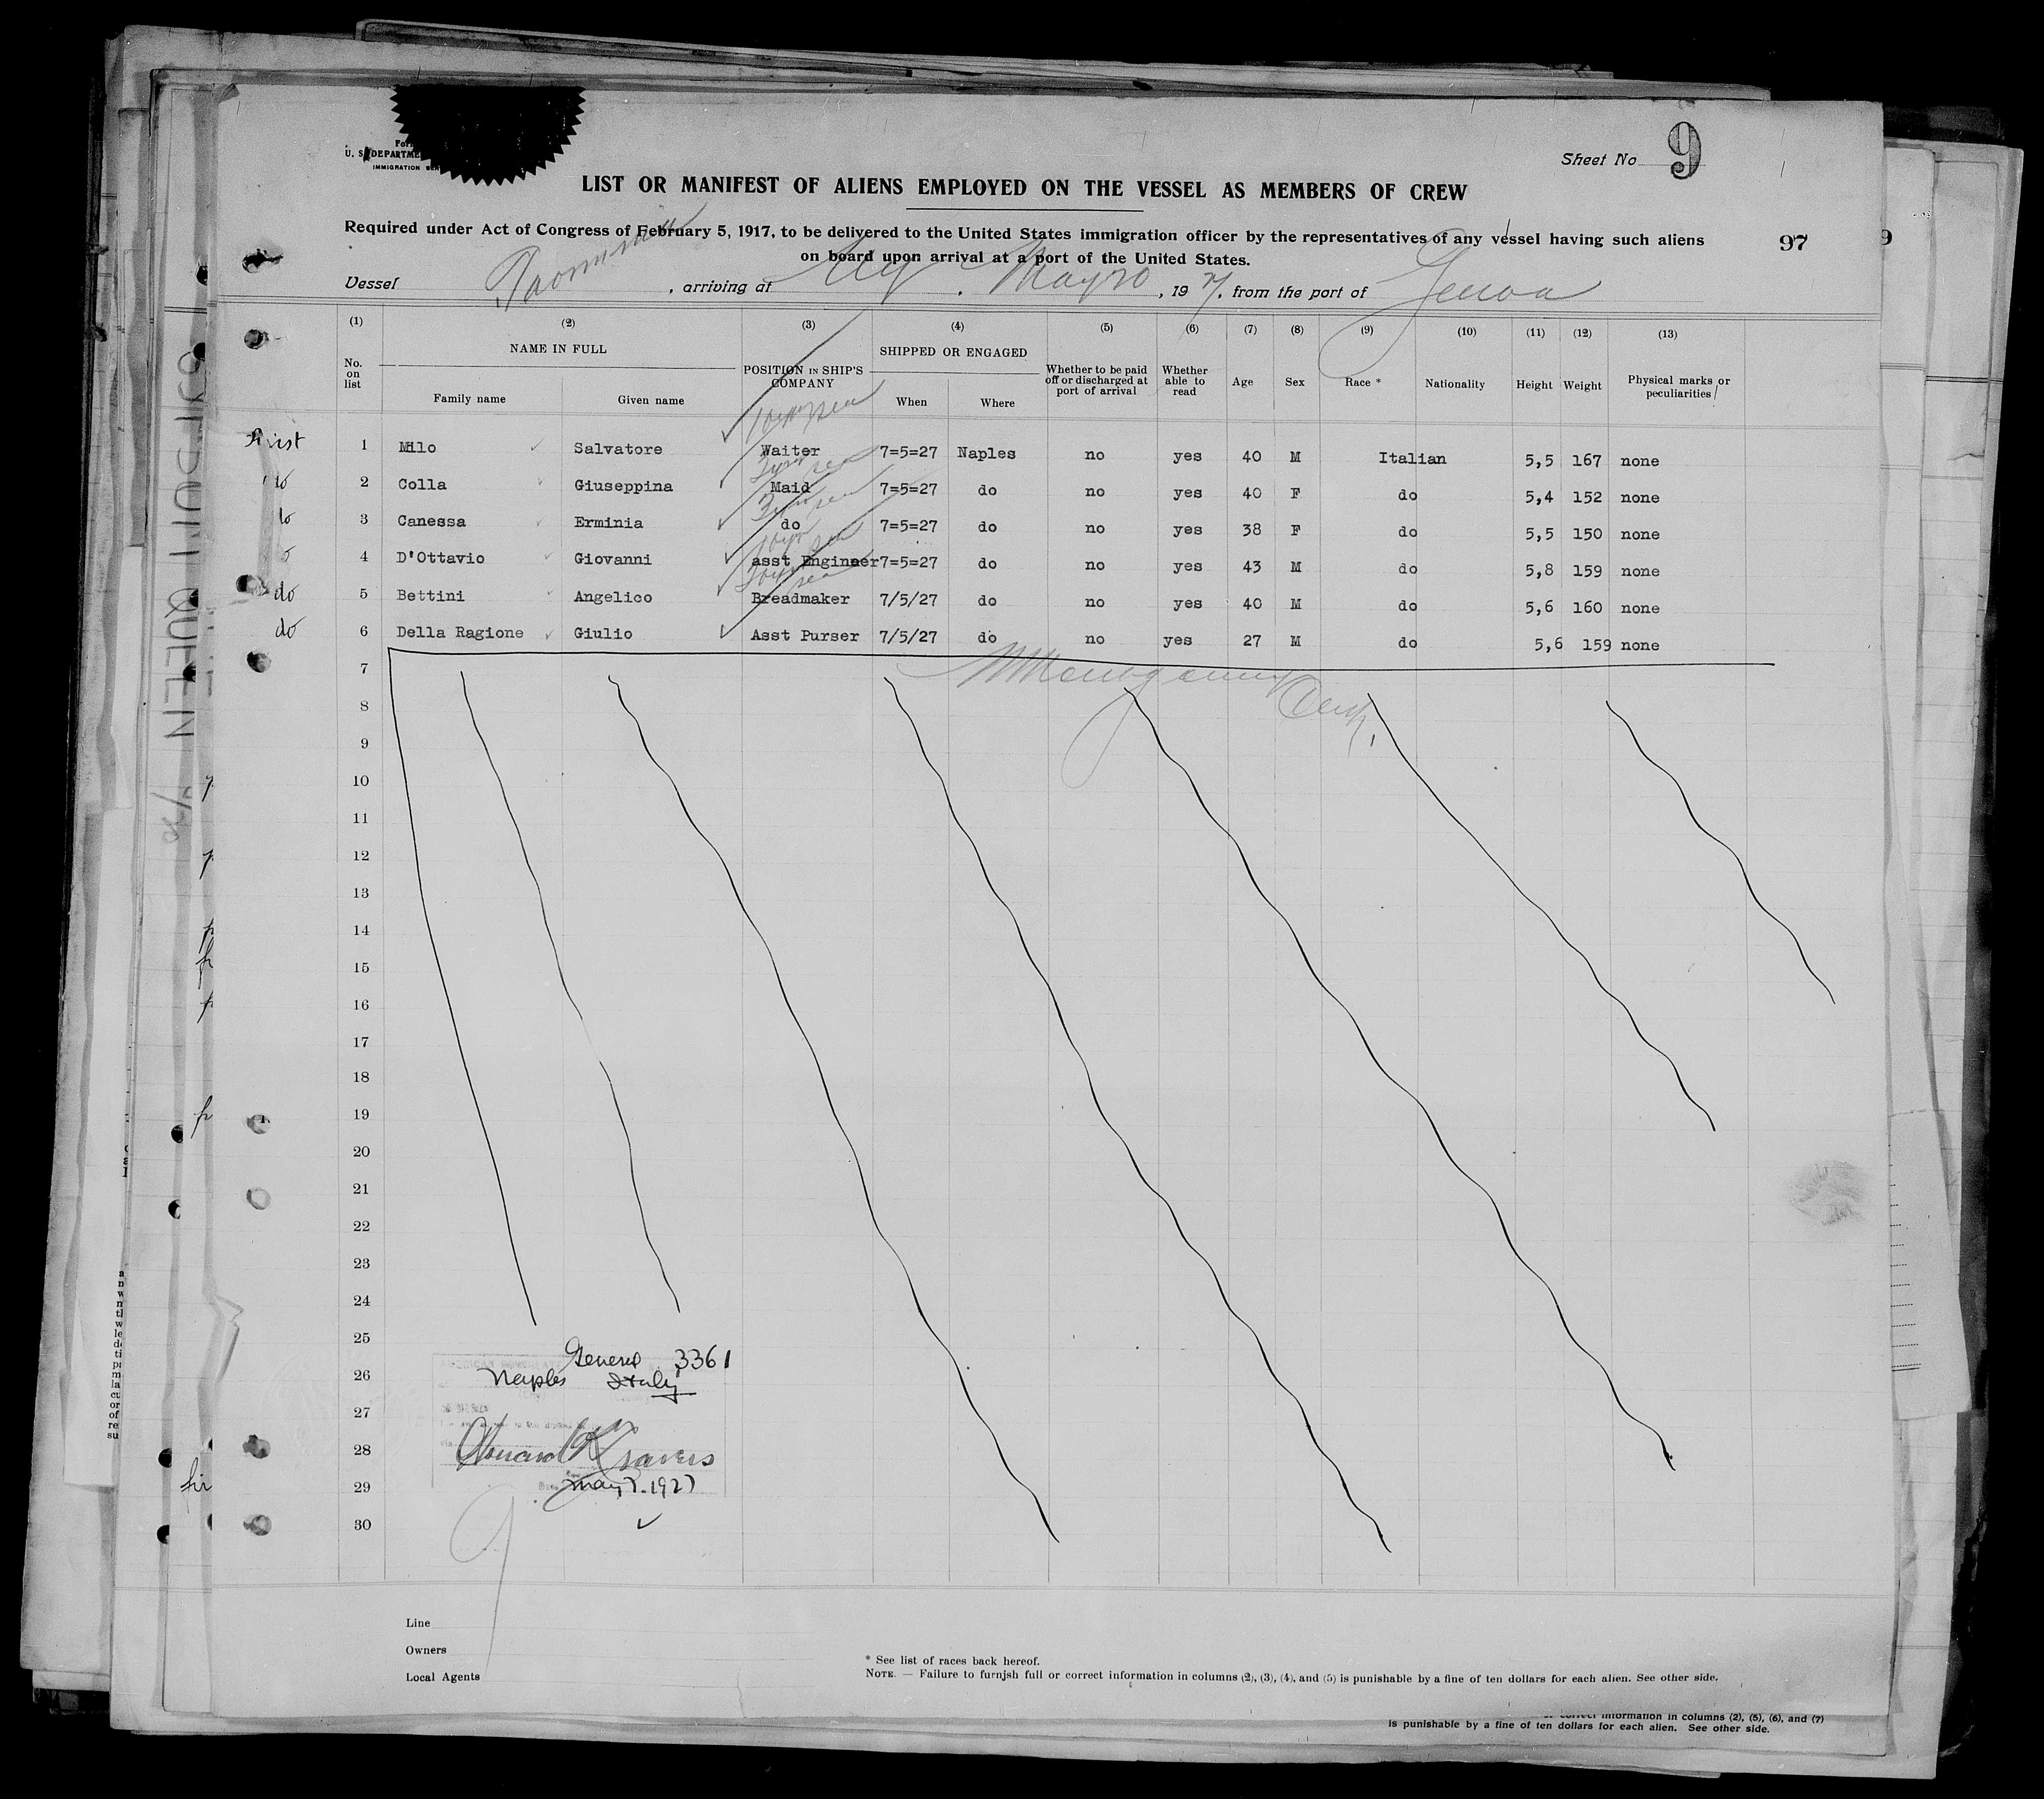 Sheet No 9
U. S. DEPARTME
IMMIGRATION SER
LIST OR MANIFEST OF ALIENS EMPLOYED ON THE VESSEL AS MEMBERS OF CREW
Required under Act of Congress of February 5, 1917, to be delivered to the United States immigration officer by the representatives of any vessel having such aliens
on board upon arrival at a port of the United States.
97
9
Vessel Taormina, arriving at NY. May 20, 1927, from the port of Genoa
(1) (2) (3) (4) (5) (6) (7) (8) (9) (10) (11) (12) (13)
No. on list NAME IN FULL Family name Given name POSITION IN SHIP'S COMPANY SHIPPED OR ENGAGED When Where Whether to be paid off or discharged at port of arrival Whether able to read Age Sex Race * Nationality Height Weight Physical marks or peculiarities
First 1 Milo Salvatore Waiter 7=5=27 Naples no yes 40 M Italian 5,5 167 none
do 2 Colla Giuseppina Maid 7=5=27 do no yes 40 F do 5,4 152 none
do 3 Canessa Erminia do 7=5=27 do no yes 38 F do 5,5 150 none
4 D'Ottavio Giovanni asst Engineer 7=5=27 do no yes 43 M do 5,8 159 none
do 5 Bettini Angelico Breadmaker 7/5/27 do no yes 40 M do 5,6 160 none
do 6 Della Ragione Giulio Asst Purser 7/5/27 do no yes 27 M do 5,6 159 none
7
8
9
10
11
12
13
14
15
16
17
18
19
20
21
22
23
24
25
26
27
28
29
30
General 3361
Naples Italy
May 7. 1927
9
Line
Owners
Local Agents
* See list of races back hereof.
NOTE. — Failure to furnish full or correct information in columns (2), (3), (4), and (5) is punishable by a fine of ten dollars for each alien. See other side.
correct information in columns (2), (5), (6), and (7)
is punishable by a fine of ten dollars for each alien. See other side.